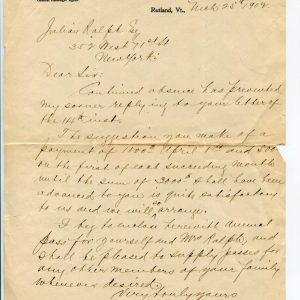 Rutland, Vt., Mch 25th 1902.
Julian Ralph Esq
352 West 71st St
New York.
Dear Sir:
Continued absence has prevented
my sooner replying to your letter of
the 14th inst.
The suggestion you make of a
payment of 1000.00 April 1st and 500.00
on the first of each succeeding month
until the sum of 3000.00 shall have been
advanced to you is quite satisfactory
to us and we will so arrange.
I beg to enclose herewith annual
pass for yourself and Mrs Ralph, and
shall be pleased to supply passes for
any other members of your family
whenever desired.
Very truly yours